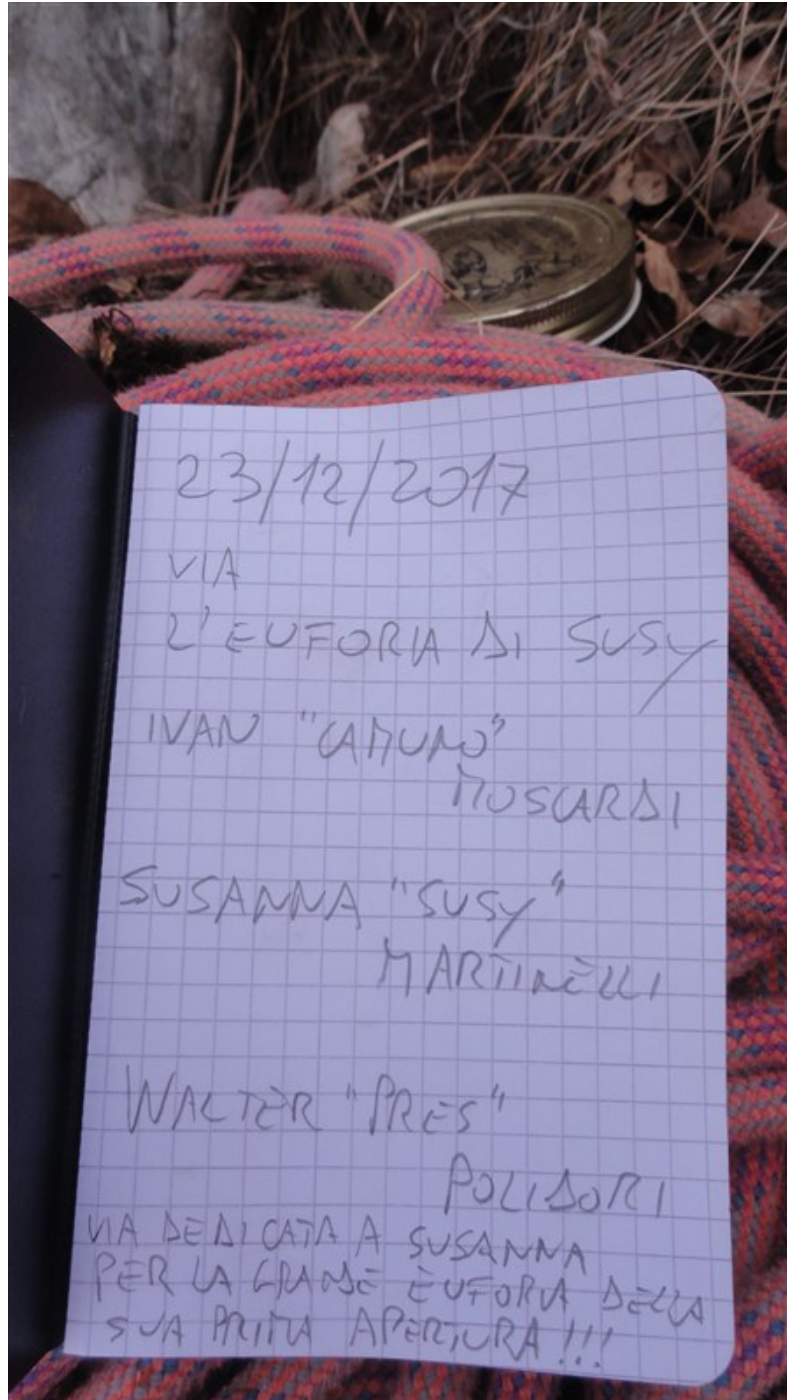 23/12/2017
VIA
L'EUFORIA DI SUSY
IVAN "CAMUNO"
MOSCARDI
SUSANNA "SUSY"
MARTINELLI
WALTER "PRES"
POLIDORI
VIA DEDICATA A SUSANNA
PER LA GRANDE EUFORIA DELLA
SUA PRIMA APERTURA!!!